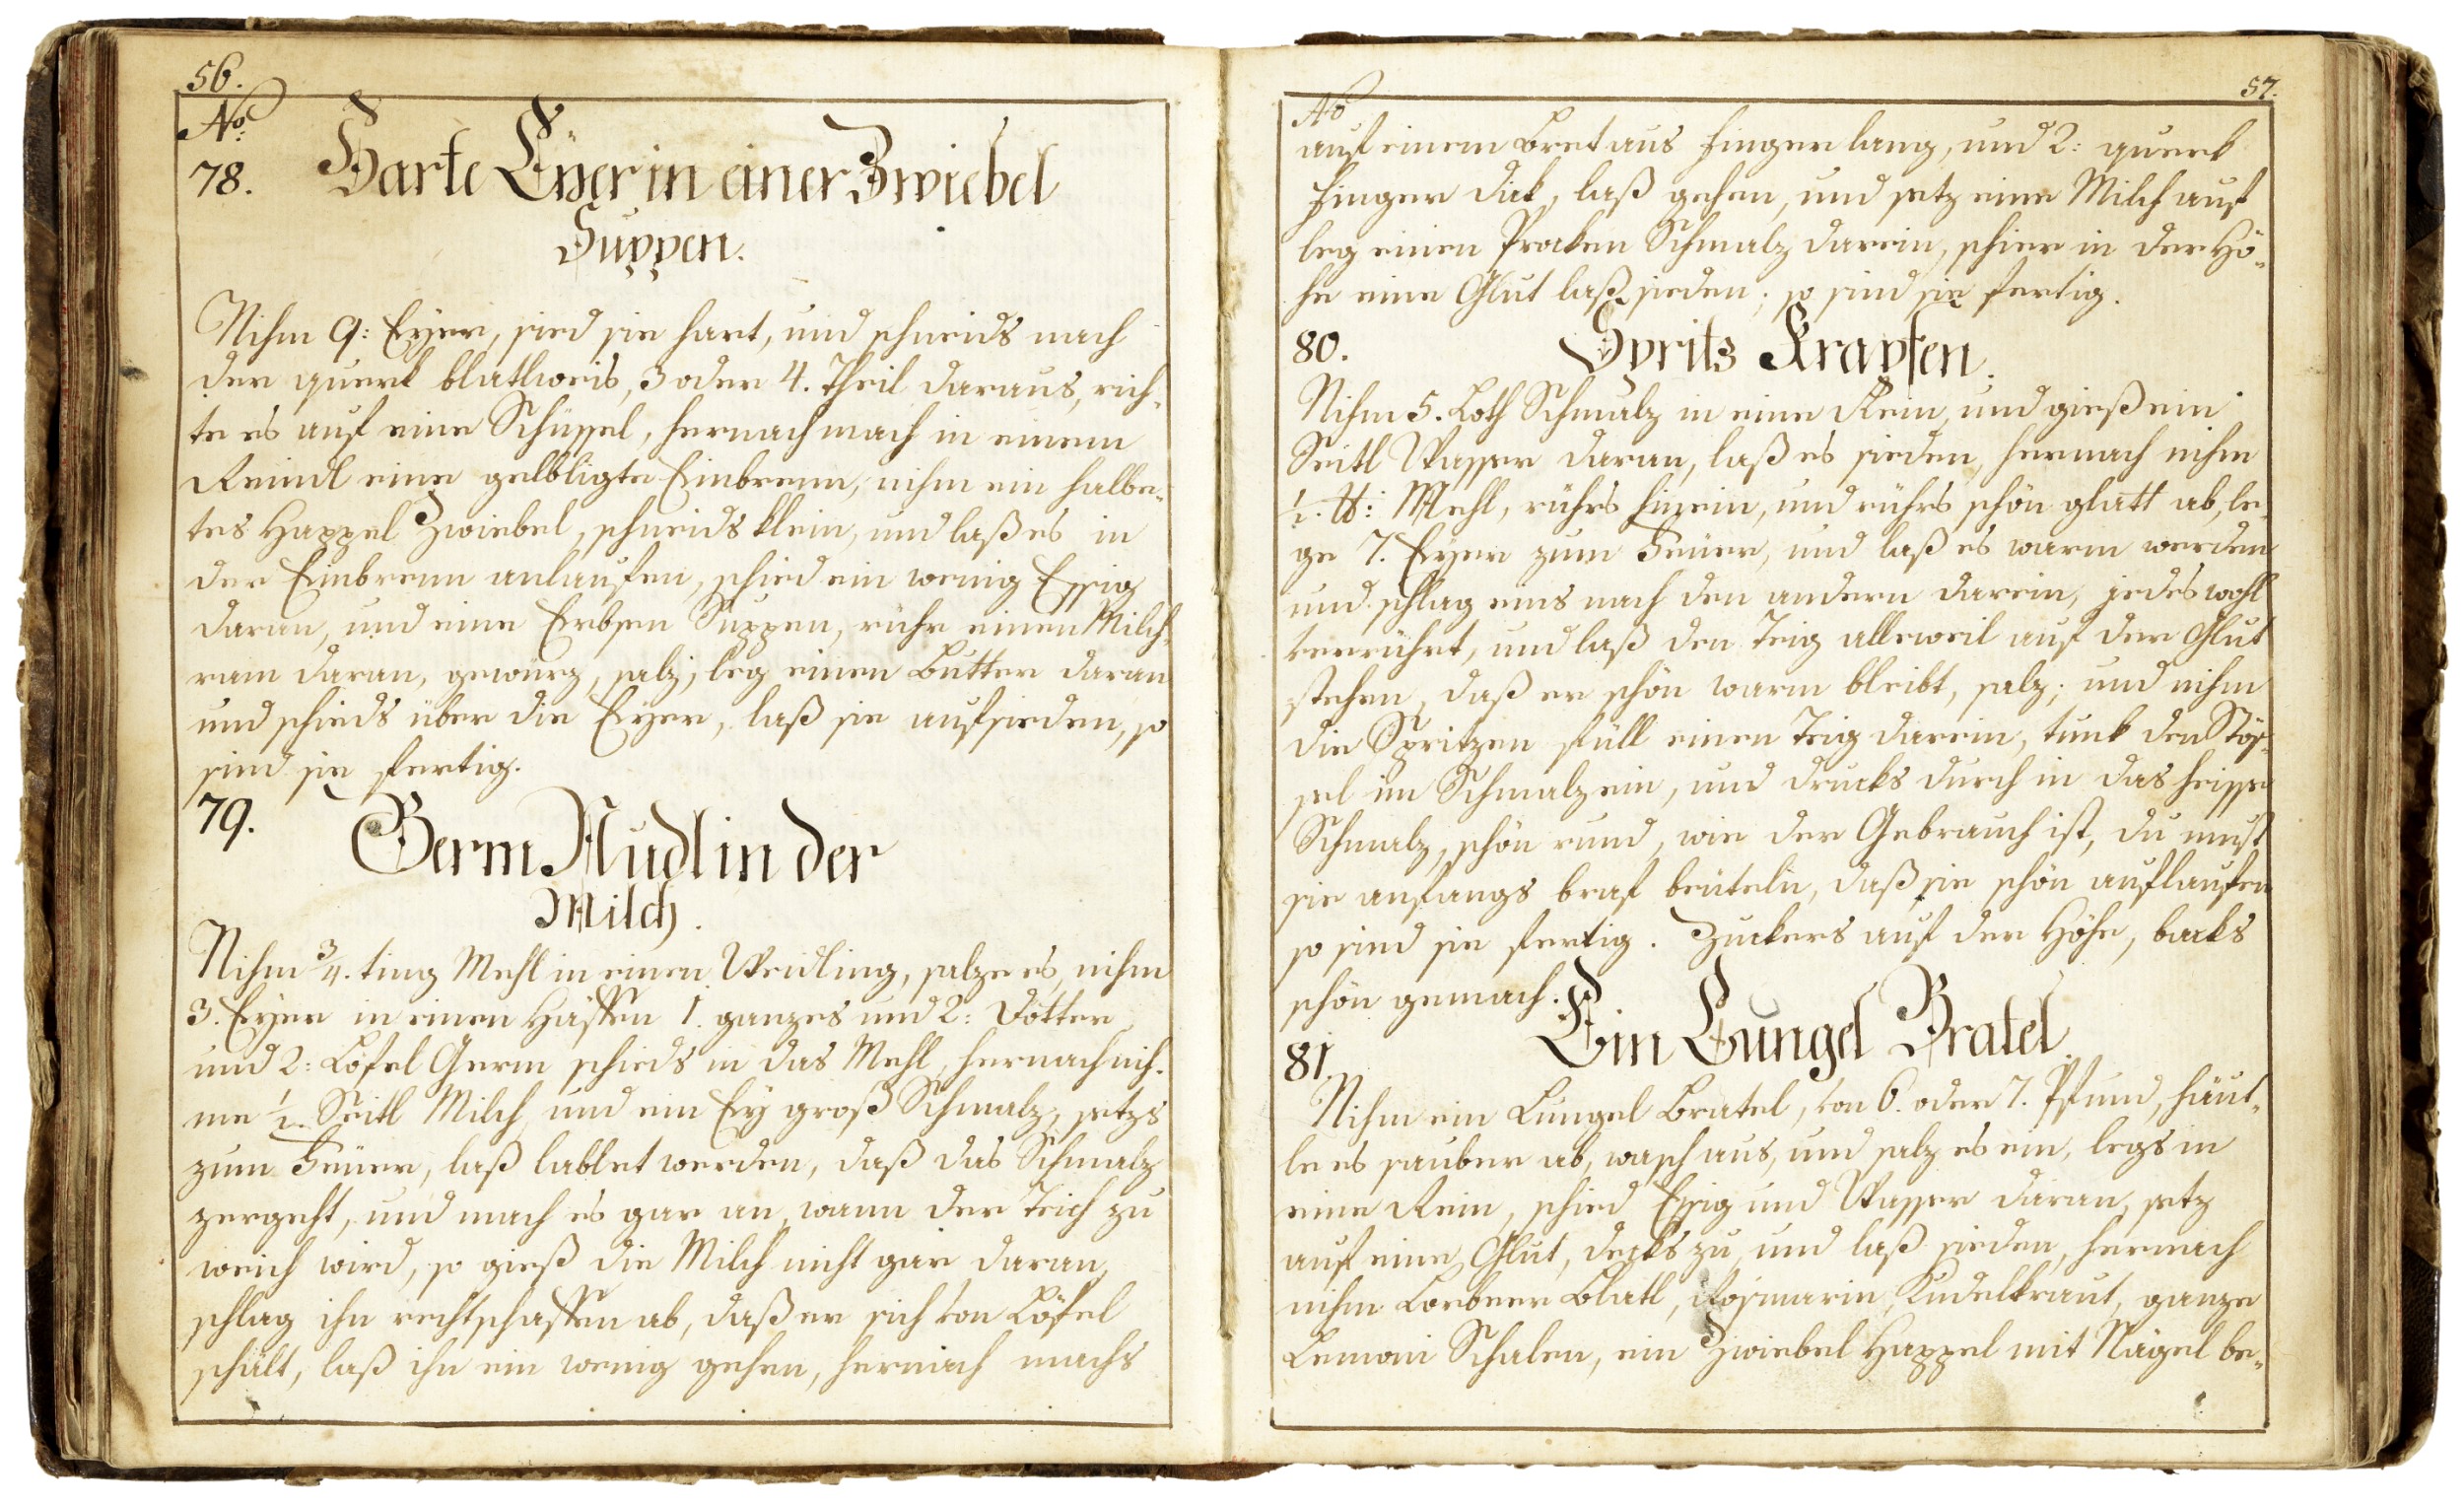 56.
No:
78. Harte Eyer in einer Zwiebel
Suppen.
Nihm 9: Eyer, sied sie hart, und schneids nach
der querk blatlweis, 3 oder 4. Theil daraus, rich„
te es auf eine Schüssel, hernach mach in einem
Reindl eine gelbligte Einbrenn, nihm ein halbe„
tes Happel Zwiebel, schneids klein, und laß es in
der Einbrenn anlaufen, schied ein wenig Essig
daran, und eine Erbsen Suppen, rühr einen Milch„
ram daran, gewürz, salz, leg einen Butter daran
und schieds über die Eyer, laß sie aufsieden, so
sind sie fertig.
79. Germ Nudl in der
Milch.
Nihm 3/4. ting Mehl in einen Weidling, salze es, nihm
3. Eyer in einen Häffen 1. ganzes und 2: Dötter
und 2: Löfel Germ schieds in das Mehl, hernach nih„
me 1/2 Seitl Milch und ein Ey groß Schmalz, setzs
zum Feüer, laß lablet werden, daß das Schmalz
zergeht, und mach es gar an, wann der Teich zu
weich wird, so gieß die Milch nicht gar daran,
schlag ihn rechtschaffen ab, daß er sich von Löfel
schält, laß ihn ein wenig gehen, hernach machs
57.
No
auf einem Bret aus finger lang, und 2: querk
finger dick, laß gehen, und setz eine Milch auf
leg einen Brocken Schmalz darein, schier in der Hö„
he eine Glut laß sieden; so sind sie fertig.
80. Spritz Krapfen.
Nihm 5. Loth Schmalz in eine Rein, und gieß ein
Seitl Wasser daran, laß es sieden, hernach nihm
1/2. ℔: Mehl, rührs hinein, und rührs schön glatt ab, le„
ge 7. Eyer zum Feüer, und laß es warm werden
und schlag eins nach den andern darein, jedes wohl
verrührt, und laß den Teig alleweil auf der Glut
stehen, daß er schön warm bleibt, salz; und nihm
die Spritzen füll einen Teig darein, tunk den Stös„
sel im Schmalz ein, und drucks durch in das heisse
Schmalz, schön rund, wie der Gebrauch ist, du must
sie anfangs braf beüteln, daß sie schön auflaufen
so sind sie fertig. Zuckers auf der Höhe, backs
schön gemach.
81. Ein Lungel Bratel
Nihm ein Lungel Bratel, von 6. oder 7. Pfund, häut„
le es sauber ab, wasch aus, und salz es ein, legs in
eine Rein, schied Essig und Wasser daran, setz
auf eine Glut, decks zu, und laß sieden, hernach
nihm Lorbeer Blatl, Rosmarin, Kudelkraut, ganze
Lemoni Schalen, ein Zwiebel Happel mit Nägel be„